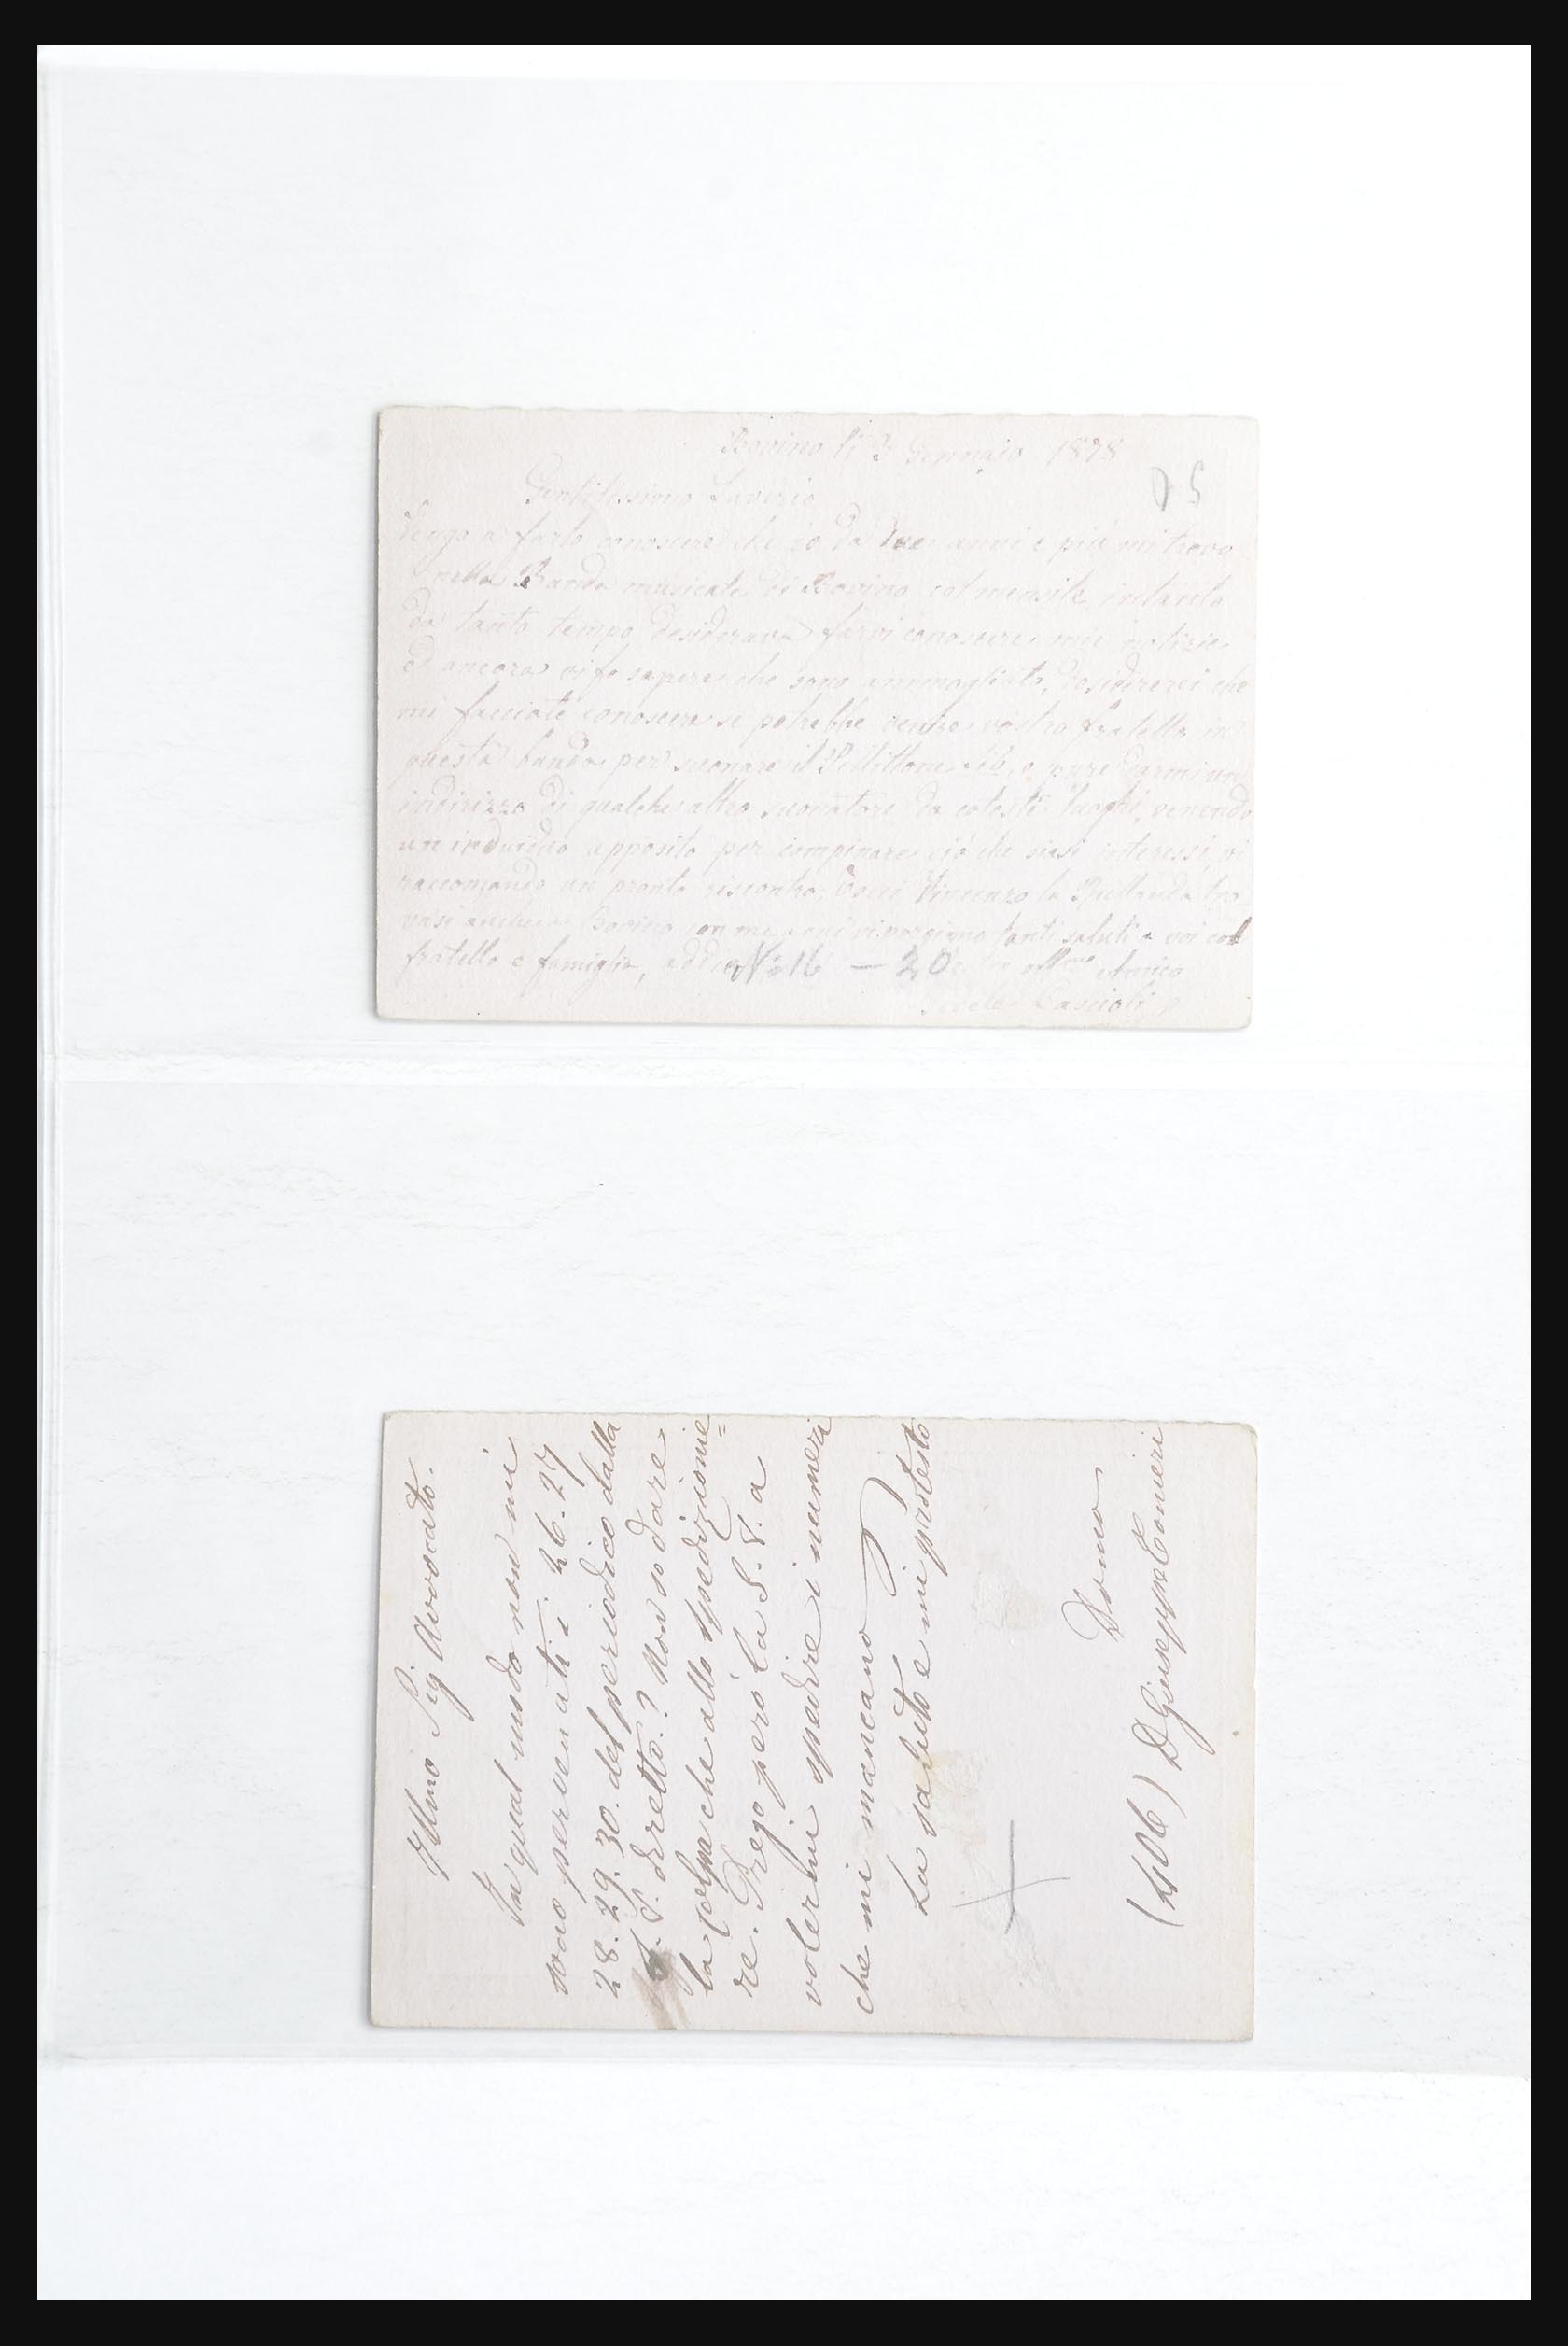 Bovino li 3 Gennaio 1878
25
Gentilissimo Saverio
Vengo a farlo conoscere che io da due anni e più mi trovo
nella Banda musicale di Bovino col mensile intanto
da tanto tempo desiderava farvi conoscere mie notizie
ed ancora vi fo sapere che sono ammogliato, desidererei che
mi facciate conoscere se potrebbe venire vostro fratello in
questa banda per suonare il Pellittone sib, o pure darmi un
indirizzo di qualche altro suonatore da cotesti luoghi, venendo
un individuo apposito per compinare ciò che siasi interessi, vi
raccomando un pronto riscontro, Vincenzo la
vasi anche a Bovino con me tanti saluti a voi col
fratello e famiglia, addio N. 16 — 20 amico
Cascioli
Illmo Sig Avvocato.
In qual modo non mi
sono pervenuti i 26. 27
28. 29. 30. del periodico dalla
S. S. diretto? Non so dare
la colpa che allo spedizionie=
re. Prego però la S. V. a
volermi spedire i numeri
che mi mancano
La saluto e mi protesto
Domo
(406) D Giuseppe Conieri